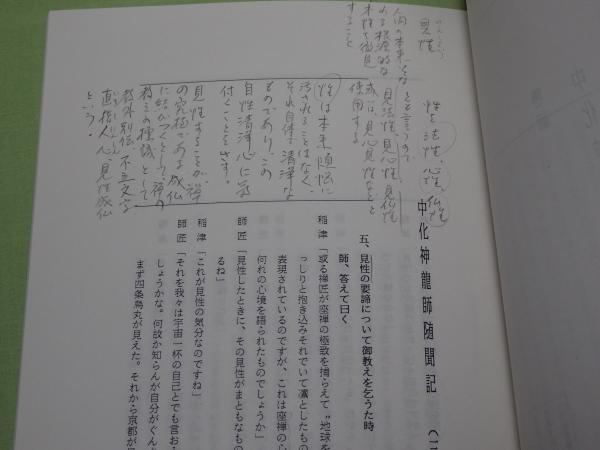 見性
人間の本来そな
わる根源的な
本性を徹見
すること
性を法性、心性、仏性
とも言うので
見法性、見心性、見仏性
或は、見心見性などと
使用する
性は本来煩悩に
汚されることはなく、
それ自体で清浄な
ものであり、この
自性清浄心に気
付くことをさす。
見性することが、禅
の究極である成仏
に結びつくとして、禅の
教外別伝、不立文字
直指人心、見性成仏
という。
中化神龍師随聞記
五、見性の要諦について御教えを乞うた時
師、答えて曰く
稲津「或る禅匠が座禅の極致を捕らえて〝地球を
っしりと抱き込みそれでいて凛としたもの
表現されているのですが、これは座禅の心
何れの心境を語られたものでしょうか」
師匠「見性したときに、その見性がまともなもの
るね」
稲津「これが見性の気分なのですね」
師匠「それを我々は宇宙一杯の自己とでも言お
しょうかな。何故か知らんが自分がぐんん
まず四条烏丸が見えた。それから京都が